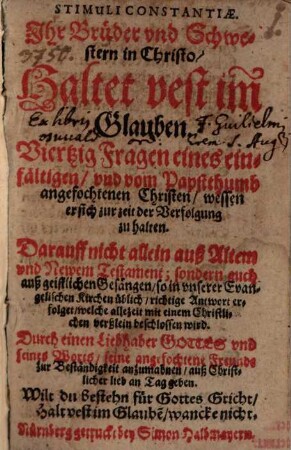 STIMULI CONSTANTIÆ.
Ihr Brüder vnd Schwe-
stern in Christo/
3750.
Haltet vest im
Ex libris
Glauben
Viertzig Fragen eines ein-
fältigen/ vnd vom Papstthumb
angefochtenen Christen/ wessen
er sich zur zeit der Verfolgung
zu halten.
Darauff nicht allein auß Altem
vnd Newem Testament; sondern auch
auß geistlichen Gesängen/ so in vnserer Evan-
gelischen Kirchen üblich/ richtige Antwort er-
folget/ welche allezeit mit einem Christli-
chen verßlein beschlossen wird.
Durch einen Liebhaber GOTTES vnd
seines Worts/ seine angefochtene Freunds
zur Beständigkeit anzumahnen/ auß Christ-
licher lieb an Tag geben.
Wilt du bestehn für Gottes Gricht/
Halt vest im Glaubē/ wancke nicht.
Nürnberg getruckt bey Simon Halbmayern.